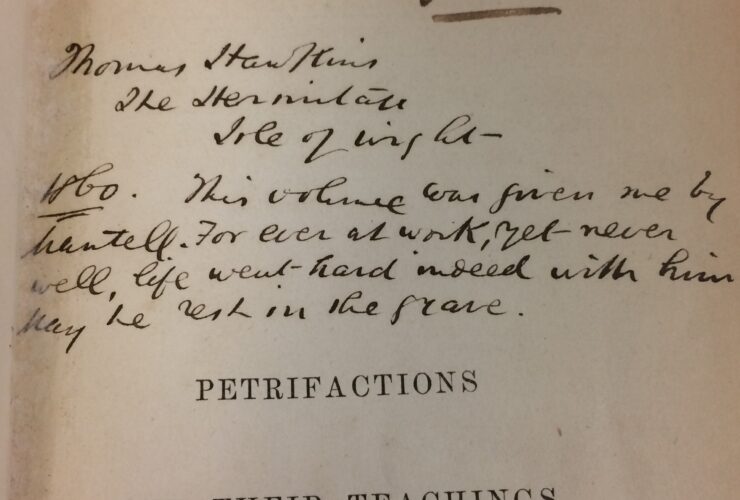 Thomas Hawkins
The Hermitage
Isle of Wight
1860. This volume was given me by
Mantell. For ever at work, yet never
well, life went hard indeed with him
May he rest in the grave.
PETRIFACTIONS
THEIR TEACHINGS